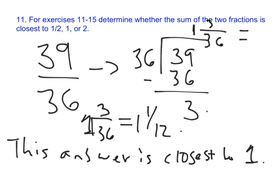 11. For exercises 11-15 determine whether the sum of the two fractions is
closest to 1/2, 1, or 2.
1 3/36 =
39/36 → 36 ) 39
- 36
3.
1 3/36 = 1 1/12.
This answer is closest to 1.